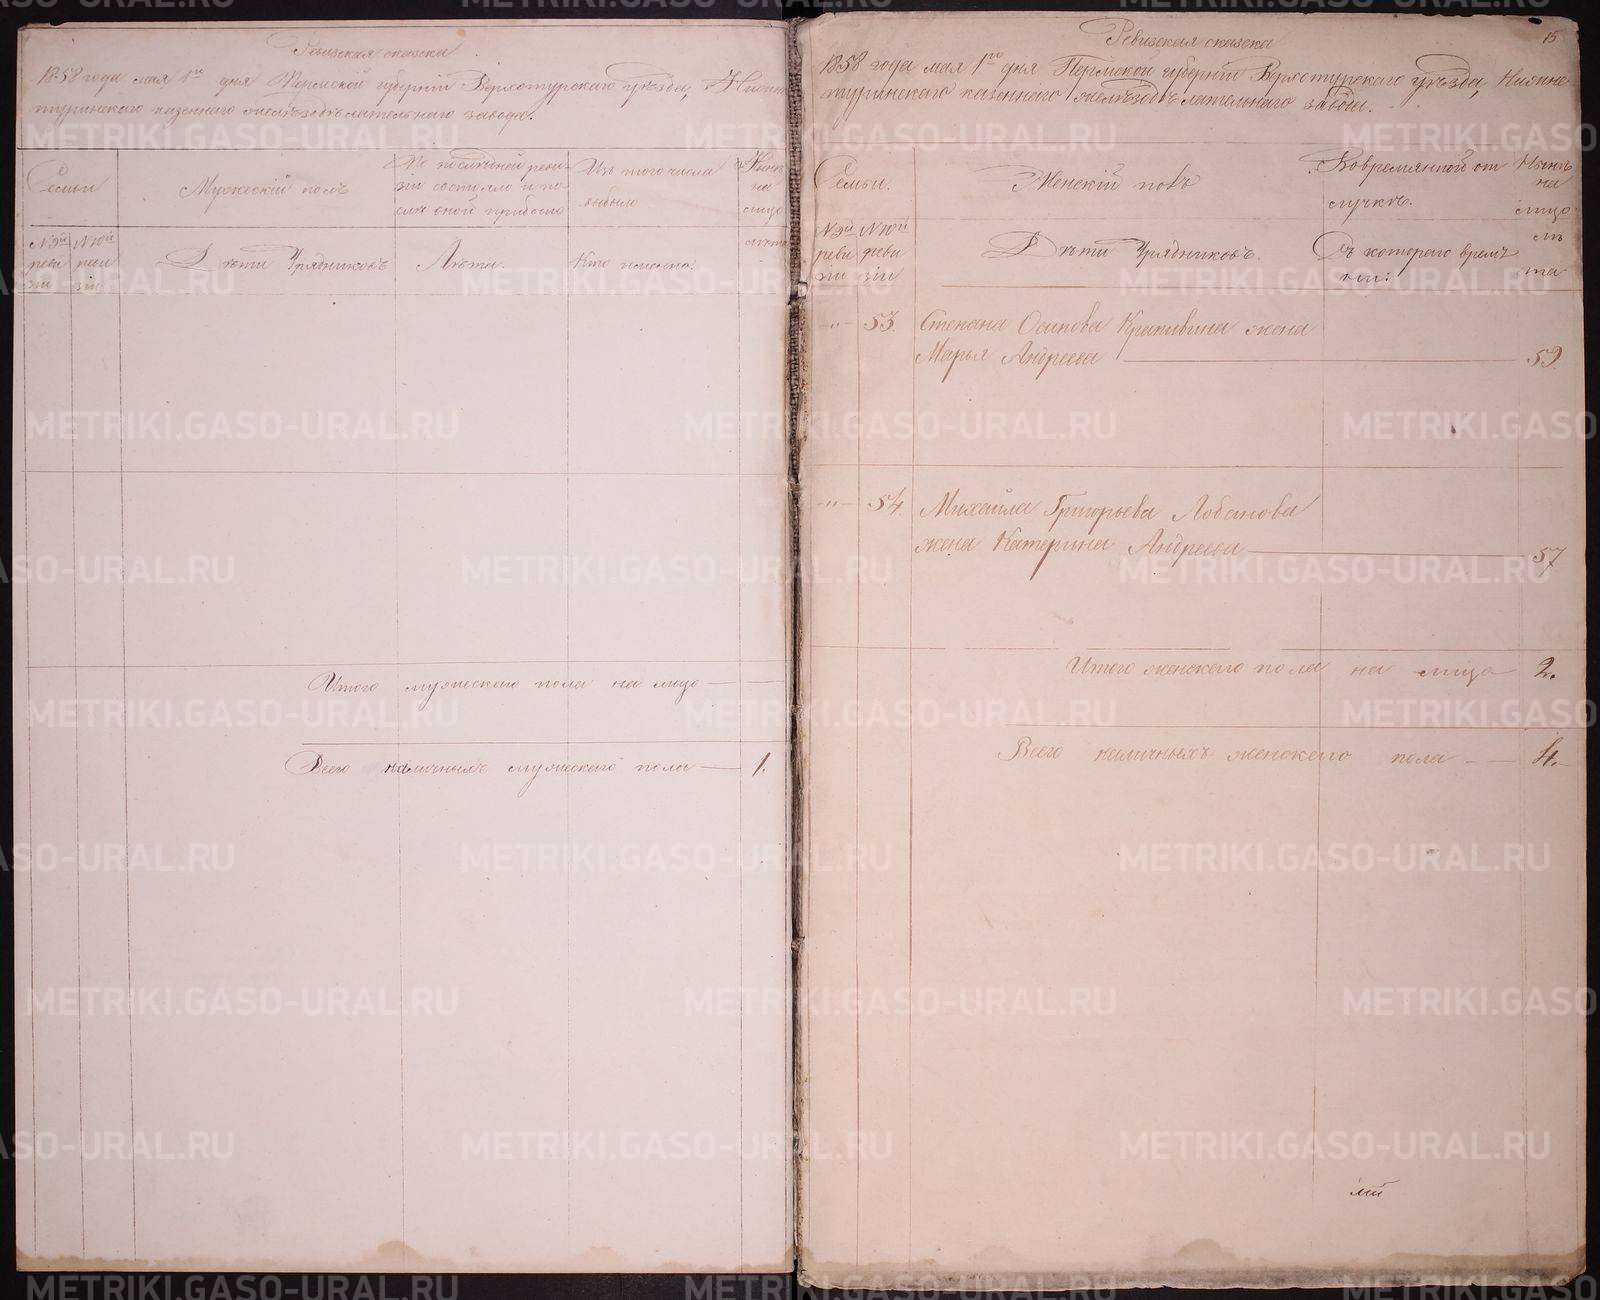 Ревизская сказка
1858 года мая 1го дня Пермской губернiи Верхотурскаго уѣзда, Нижне
туринскаго казеннаго желѣзодѣлательнаго завода.
Семьи
Мужескiй полъ
По послѣдней реви-
зiи состояло и по
слѣ оной прибыло
Изъ того числа
выбыло
Нынѣ
на
лицо
№ 9й
реви
зiи
№ 10й
реви
зiи
Дѣти Урядниковъ
Лѣта.
Кто именно.
лѣта
Итого мужескаго пола на лицо
Всего наличныхъ мужескаго пола — 1.
15
Ревизская сказка
1858 года мая 1го дня Пермской губернiи Верхотурскаго уѣзда, Нижне
туринскаго казеннаго желѣзодѣлательнаго завода.
Семьи.
Женскiй полъ
Во временной от
лучкѣ.
Нынѣ
на
лицо
№ 9й
реви
зiи
№ 10й
реви
зiи
Дѣти Урядниковъ.
Съ котораго време
ни.
лѣ
та
-"- 53. Степана Осипова Крапивина жена
Марья Андреева — 59.
-"- 54. Михайла Григорьева Лобанова
жена Катерина Андреева — 57
Итого женскаго пола на лицо 2.
Всего наличныхъ женскаго пола — 4.
METRIKI.GASO-URAL.RU